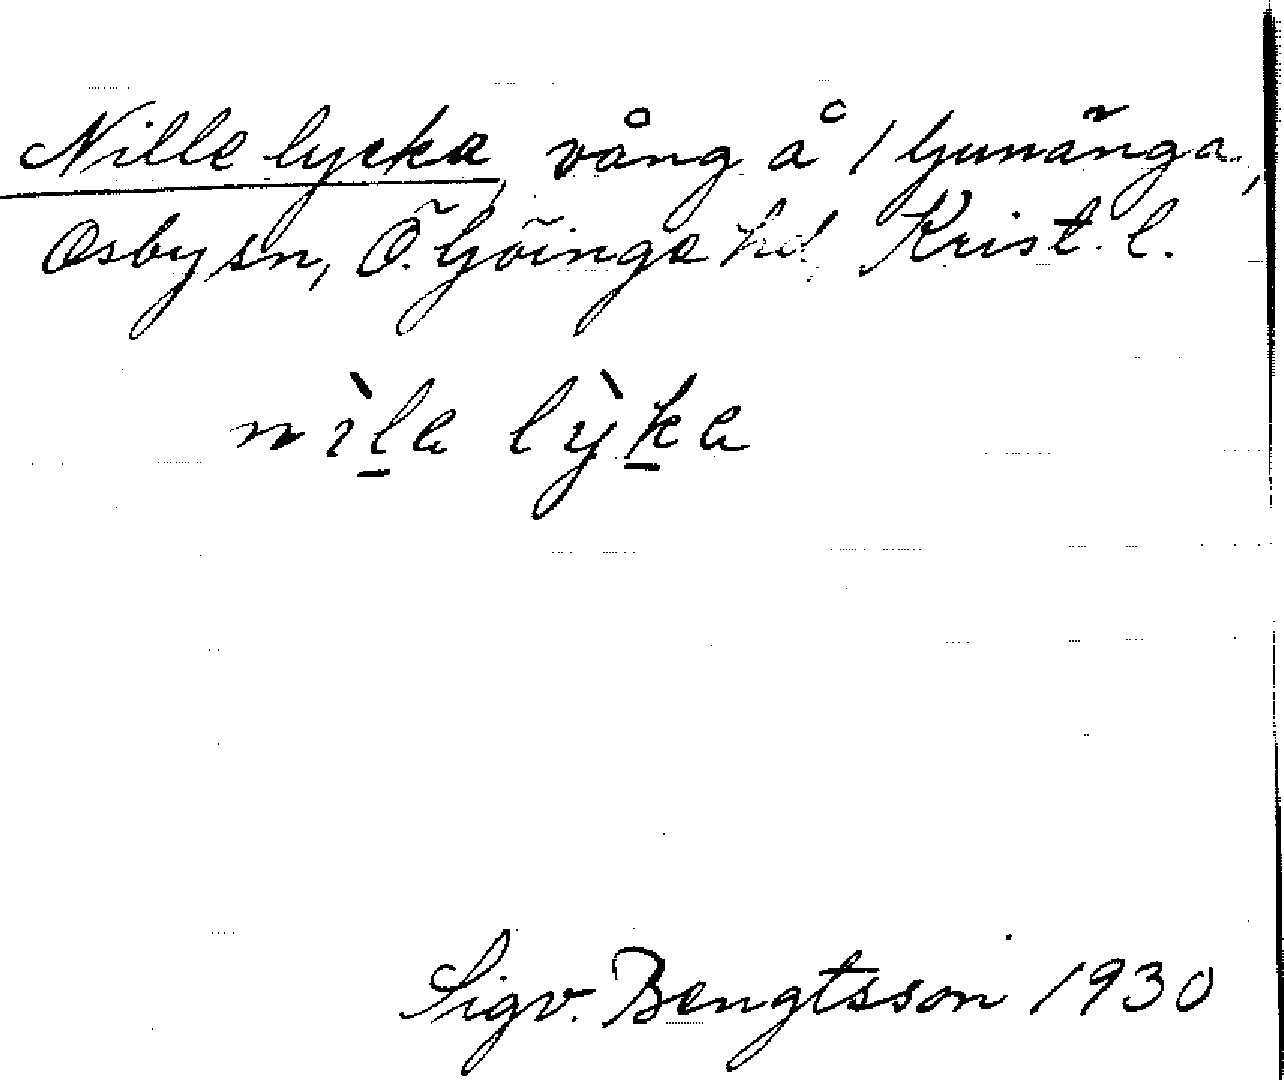 Nille lycka, vång å 1 Ljunänga,
Osby sn, Ö. Göinge hd, Krist. l.
nìl̲a lỳk̲a
Sigv. Bengtsson 1930